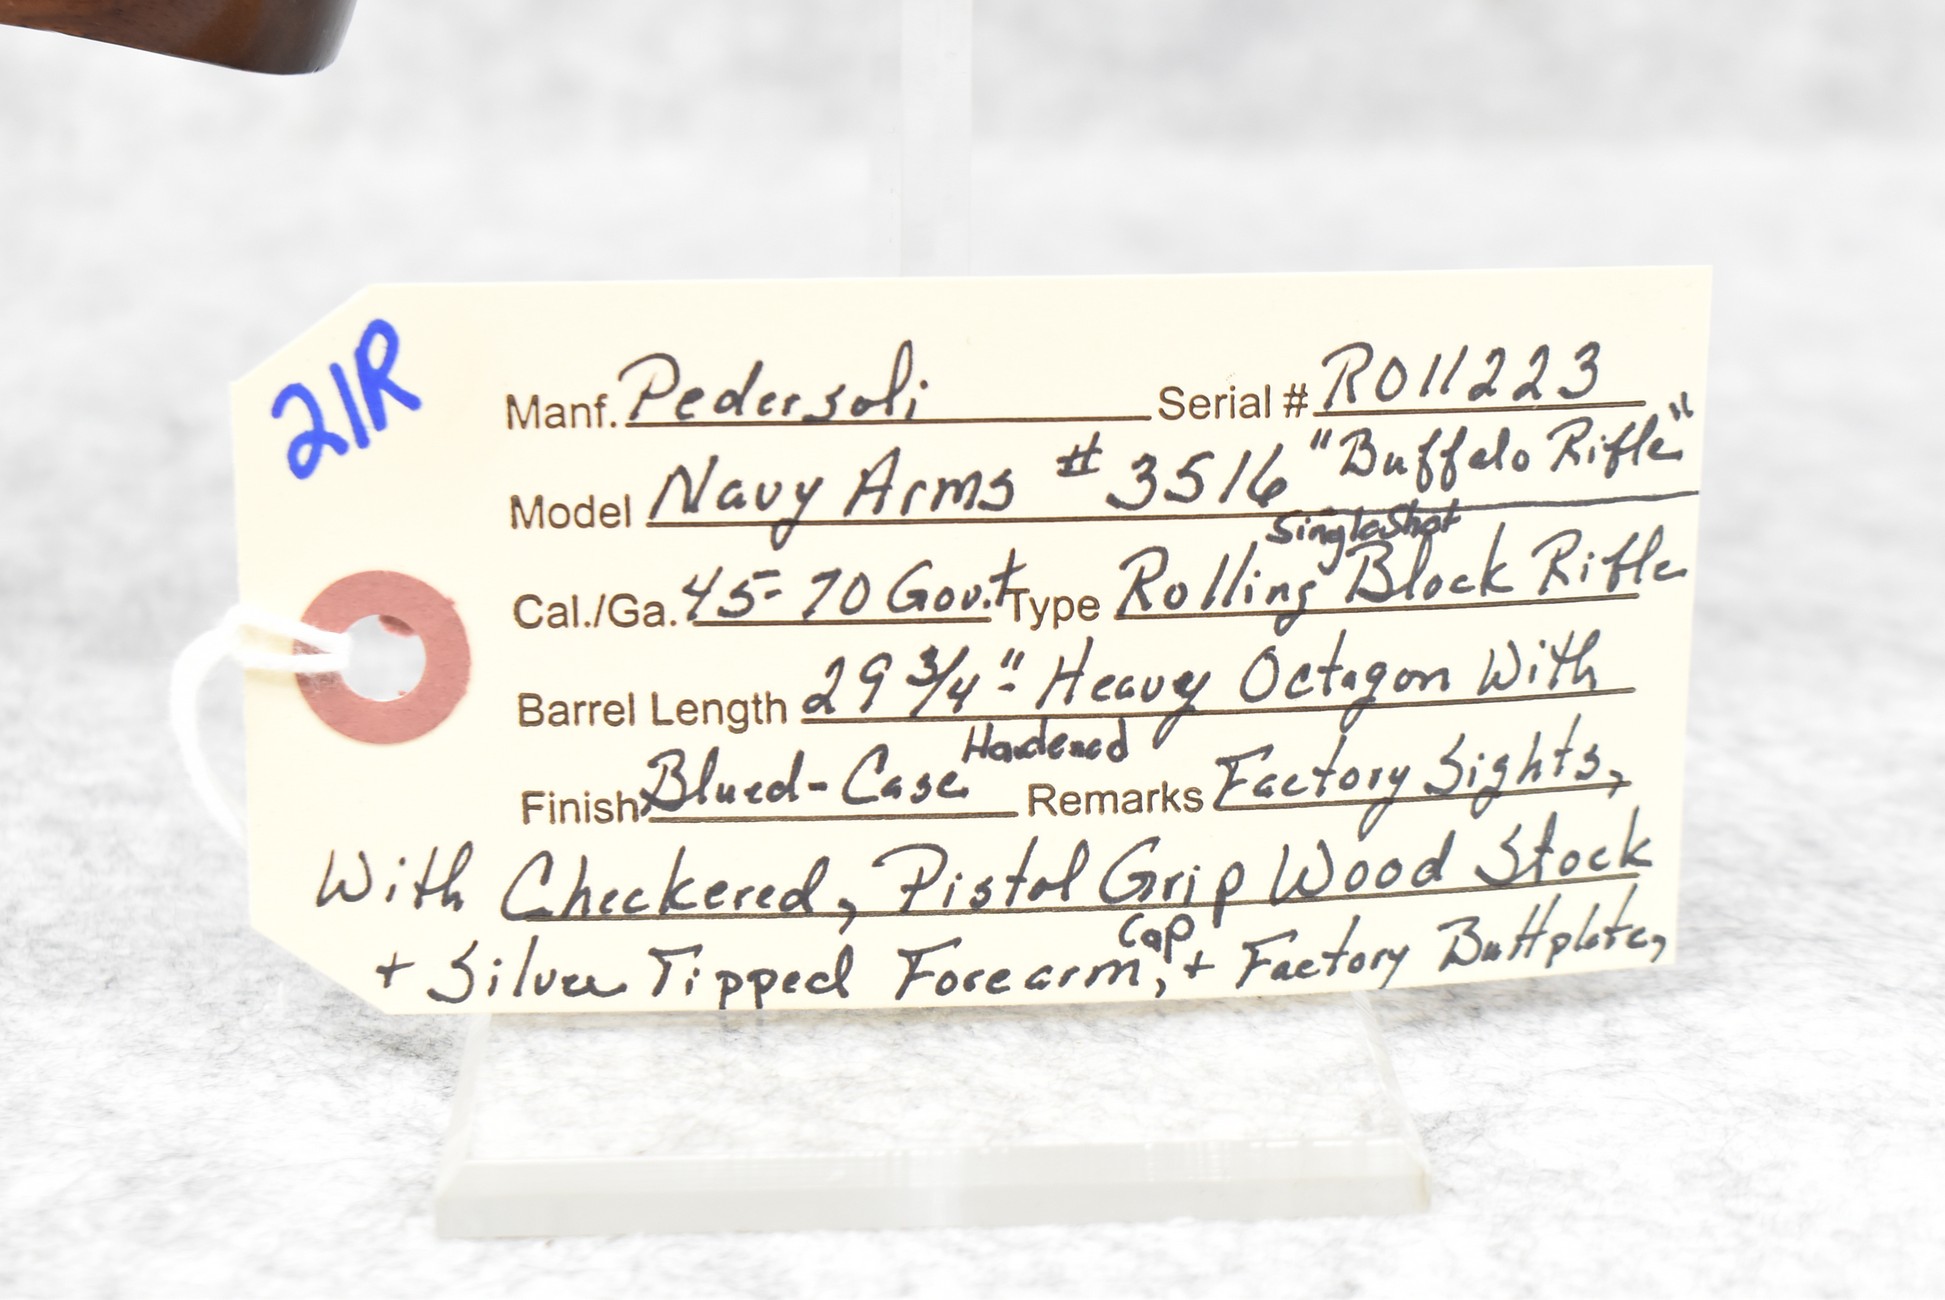 21R
Manf. Pedersoli Serial # R011223
Model Navy Arms # 3516 "Buffalo Rifle"
Cal./Ga. 45-70 Gov.t Type Rolling Block Rifle
Single Shot
Barrel Length 29 3/4" Heavy Octagon With
Finish Blued-Case Hardened Remarks Factory Sights,
With Checkered, Pistol Grip Wood Stock
+ Silver Tipped Forearm Cap, + Factory Buttplate,